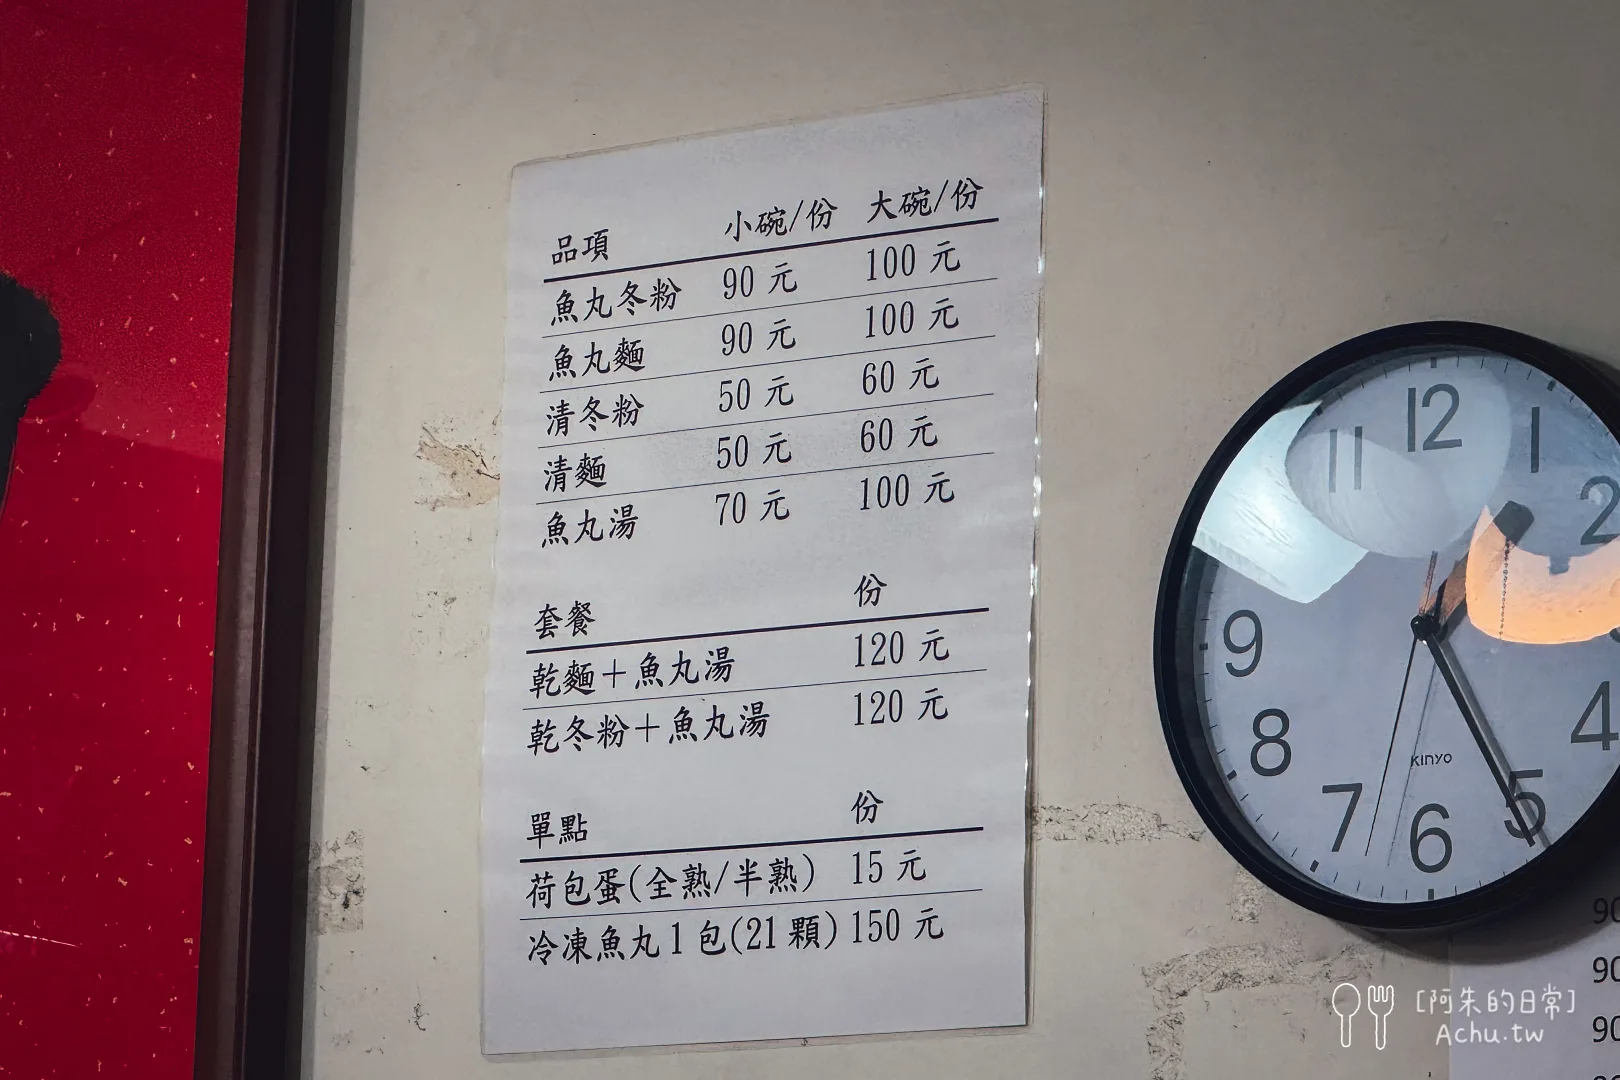 品項 小碗/份 大碗/份
魚丸冬粉 90 元 100 元
魚丸麵 90 元 100 元
清冬粉 50 元 60 元
清麵 50 元 60 元
魚丸湯 70 元 100 元
套餐 份
乾麵+魚丸湯 120 元
乾冬粉+魚丸湯 120 元
單點 份
荷包蛋(全熟/半熟) 15 元
冷凍魚丸 1 包(21 顆) 150 元
12
1
2
4
5
6
7
8
9
11
KINYO
90
90
90
[阿朱的日常]
Achu.tw